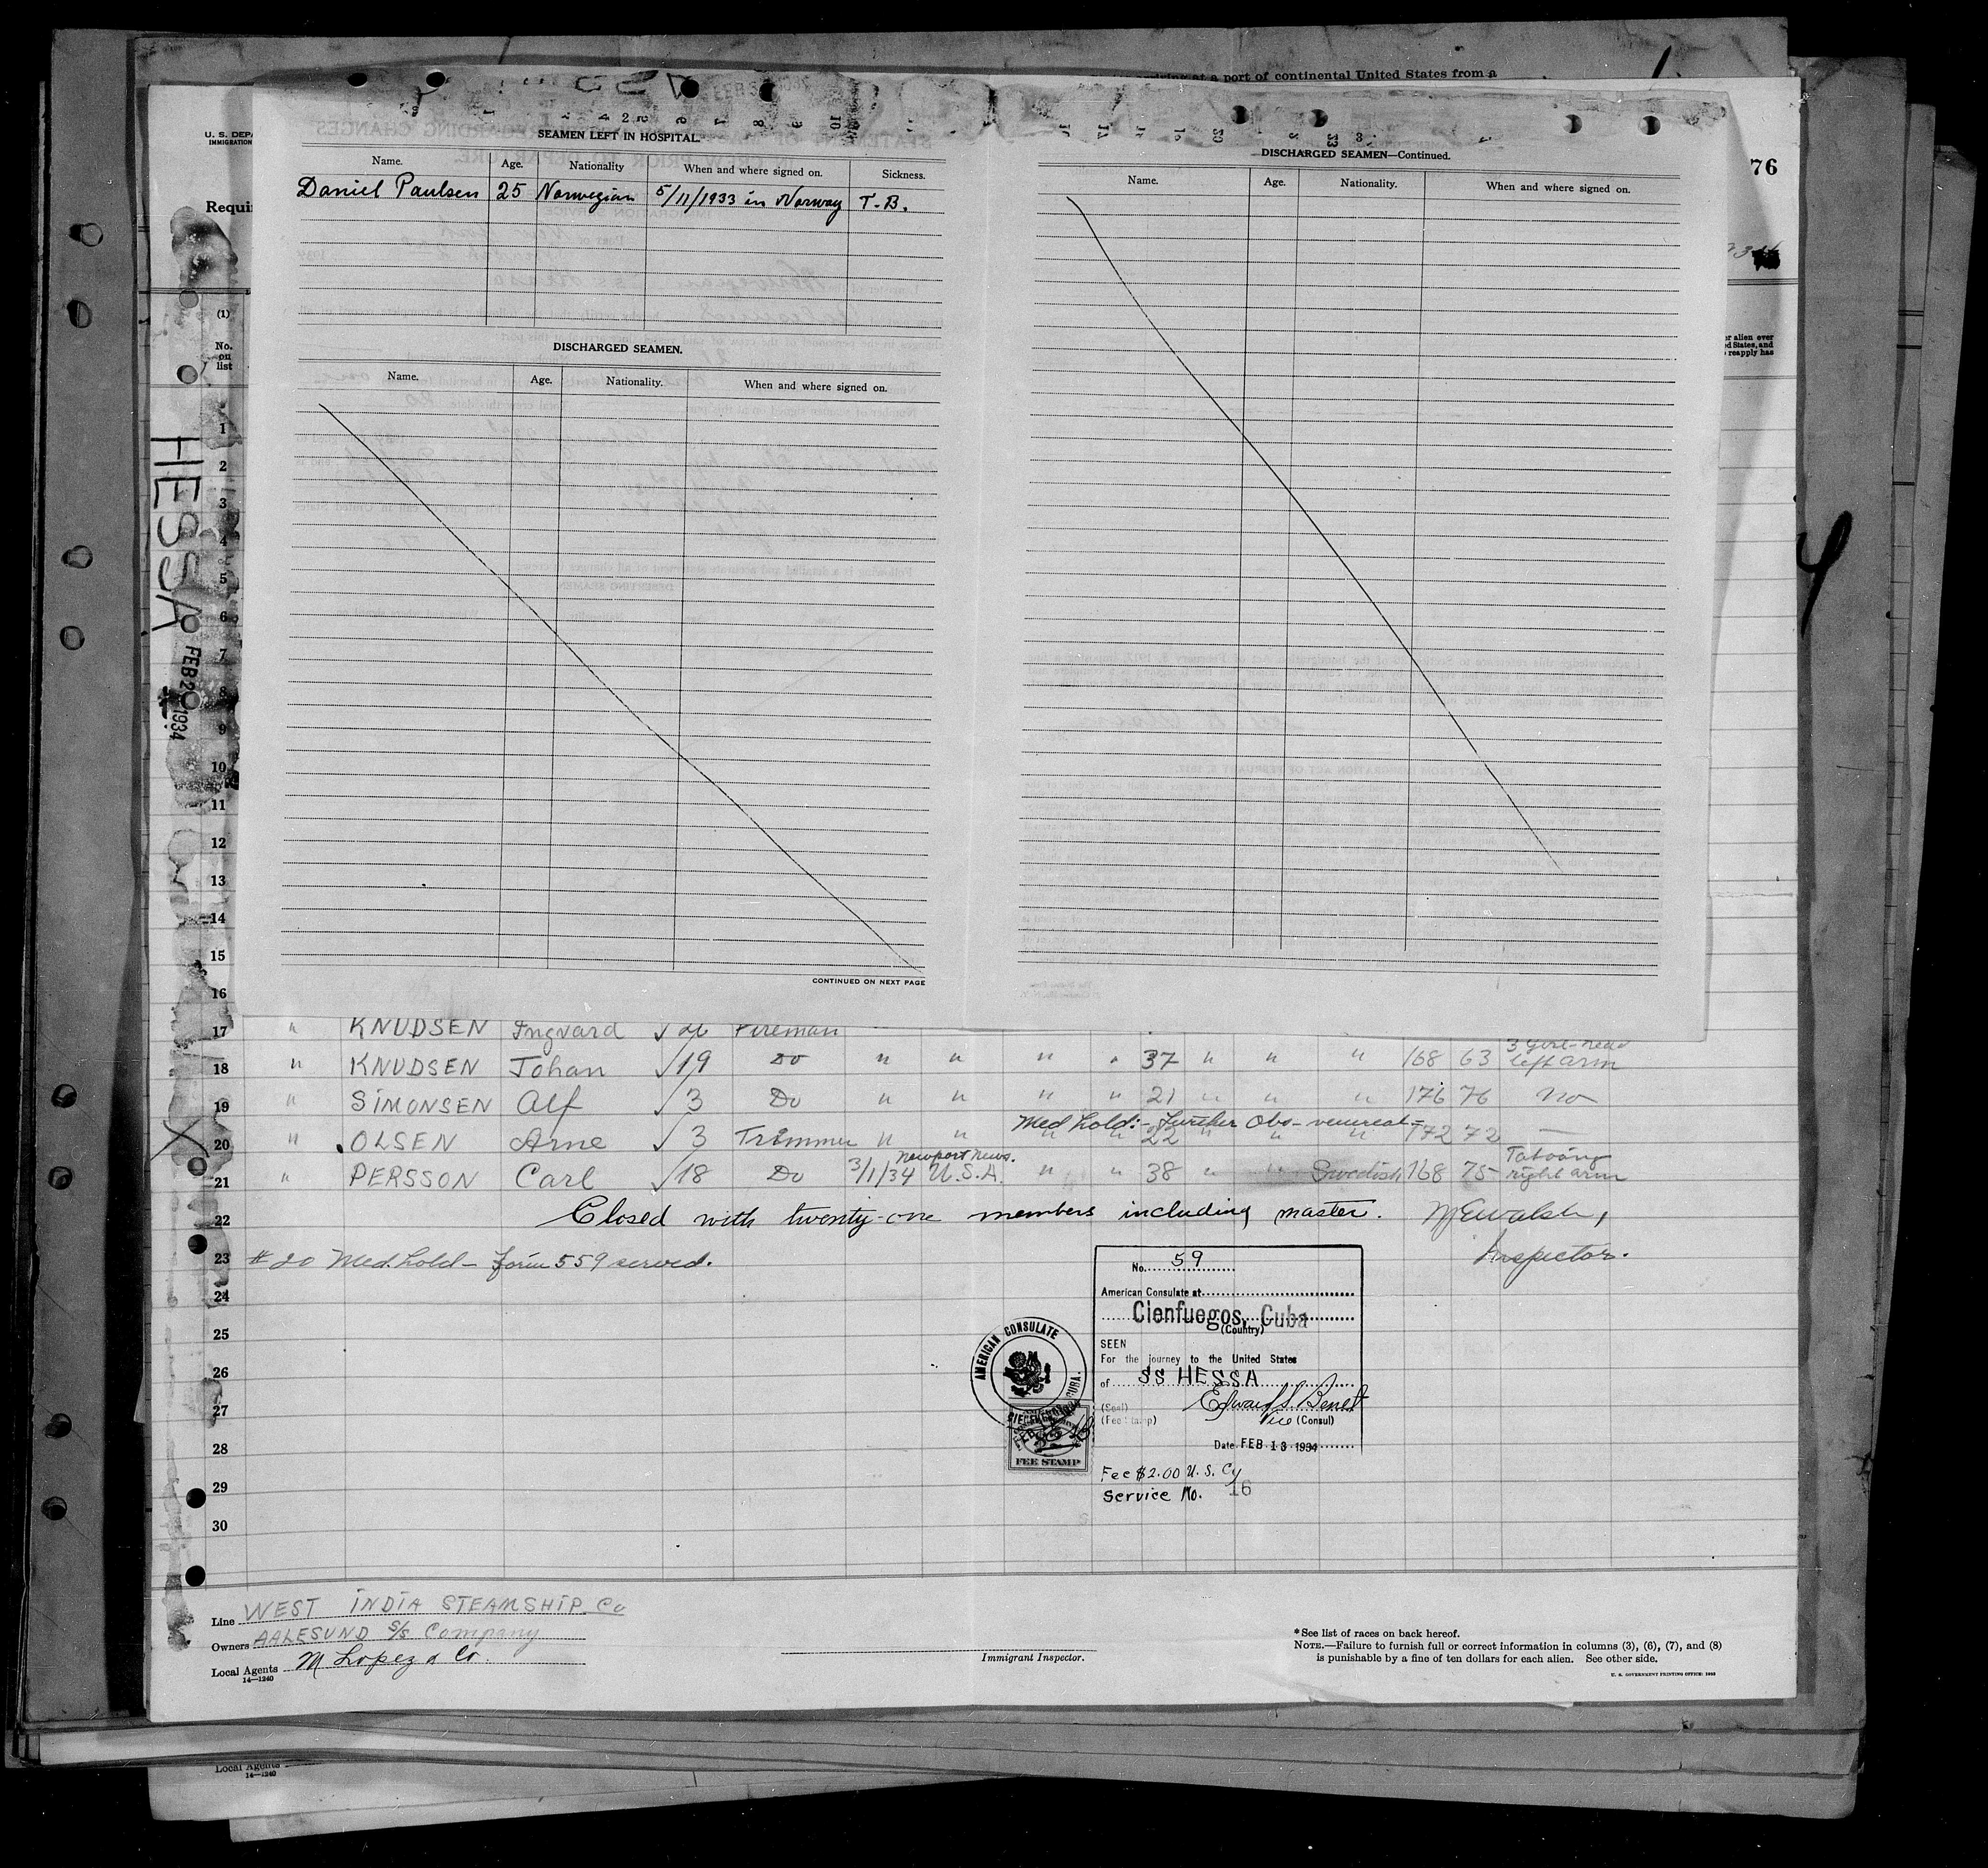 port of continental United States from a
U. S. DEPA
IMMIGRATION
76
Requi
SEAMEN LEFT IN HOSPITAL.
Name. Age. Nationality When and where signed on. Sickness.
Daniel Paulsen 25 Norwegian 5/11/1933 in Norway T.B.
DISCHARGED SEAMEN.
Name. Age. Nationality. When and where signed on.
CONTINUED ON NEXT PAGE
DISCHARGED SEAMEN—Continued.
Name. Age. Nationality. When and where signed on.
(1)
No. on list
er alien ever
ed States, and
reapply has
HESSA
FEB 2 1934
1
2
3
4
5
6
7
8
9
10
11
12
13
14
15
16
17 " KNUDSEN Ingvard √ 26 Fireman
18 " KNUDSEN Johan √ 19 Do " " " " 37 " " " 168 63 left arm
19 " SIMONSEN Alf √ 3 Do " " " " 21 " " " 176 76 No
Med hold:- Further Obs- venereal-
20 " OLSEN Arne √ 3 Trimmer " " " " 22 " " " 172 72 —
21 " PERSSON Carl √ 18 Do 3/1/34 Newport News. U.S.A. " " 38 " " Swedish 168 75 Tatoáng right arm
22 Closed with twenty-one members including master. Inspector.
23 # 20 Med. hold - form 559 served.
24
25
26
27
28
29
30
No. 59
American Consulate at
Cienfuegos, Cuba
(Country)
SEEN
For the journey to the United States
of SS HESSA
(Seal)
Edward S. Benet
(Fee Stamp)
Vice (Consul)
Date FEB 13 1934
Fee $2.00 U. S. Cy
Service No. 16
AMERICAN CONSULATE
CUBA.
FEE STAMP
Line WEST INDIA STEAMSHIP Co
Owners AALESUND S/S Company
Local Agents M Lopez & Co.
14—1240
Immigrant Inspector.
* See list of races on back hereof.
NOTE.—Failure to furnish full or correct information in columns (3), (6), (7), and (8)
is punishable by a fine of ten dollars for each alien. See other side.
U. S. GOVERNMENT PRINTING OFFICE: 1933
Local Agents
14—1240